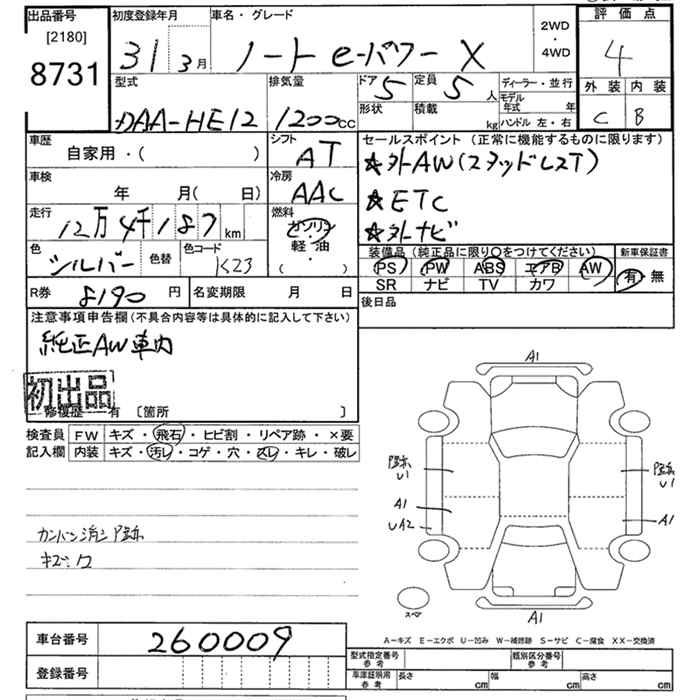 出品番号
[2180]
8731
初度登録年月
31 3月
車名・グレード
ノート e-パワー X
2WD
・
4WD
評価点
4
外装 内装
C B
型式
DAA-HE12
排気量
1200cc
ドア 5
定員 5人
形状
積載 kg
ディーラー・並行
モデル年式 年
ハンドル 左・右
車歴
自家用・( )
シフト
AT
車検
年 月( 日)
冷房
AAC
走行
12万4千187km
燃料
ガソリン
軽油
( ・ )
色
シルバー
色替
色コード
K23
セールスポイント(正常に機能するものに限ります)
☆外AW(スタッドレスT)
☆ETC
☆外ナビ
装備品(純正品に限り○をつけてください)
PS PW ABS エアB AW
SR ナビ TV カワ
新車保証書
有・無
R券 8190円
名変期限 月 日
後日品
注意事項申告欄(不具合内容等は具体的に記入して下さい)
純正AW車内
初出品
修復歴 有 〔箇所 〕
検査員記入欄
FW キズ・飛石・ヒビ割・リペア跡・×要
内装 キズ・汚レ・コゲ・穴・スレ・キレ・破レ
カンバン消シ跡
キズ・ワ
A1
跡
U1
A1
UA2
跡
U1
A1
A1
スペア
A-キズ E-エクボ U-凹み W-補修跡 S-サビ C-腐食 XX-交換済
車台番号
260009
登録番号
型式指定番号
参考
類別区分番号
参考
車庫証明用
参考
長さ cm
幅 cm
高さ cm